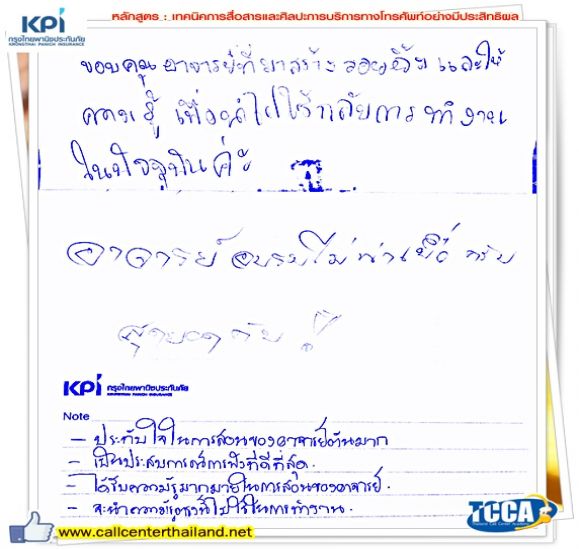 KPI
กรุงไทยพานิชประกันภัย
KRUNGTHAI PANICH INSURANCE
หลักสูตร : เทคนิคการสื่อสารและศิลปะการบริการทางโทรศัพท์อย่างมีประสิทธิผล
ขอบคุณ อาจารย์ที่มาสร้างรอยยิ้ม และให้
ความรู้ เพื่อนำไปใช้กับการทำงาน
ในปัจจุบันค่ะ
อาจารย์อบรมไม่น่าเบื่อ ครับ
สุดยอดครับ !!
KPI กรุงไทยพานิชประกันภัย
KRUNGTHAI PANICH INSURANCE
Note
- ประทับใจในการสอนของอาจารย์ต้นมาก
- เป็นประสบการณ์การฟังที่ดีที่สุด.
- ได้รับความรู้มากมายในการสอนของอาจารย์.
- จะนำความรู้ตรงนี้ไปใช้ในการทำงาน.
www.callcenterthailand.net
TCCA